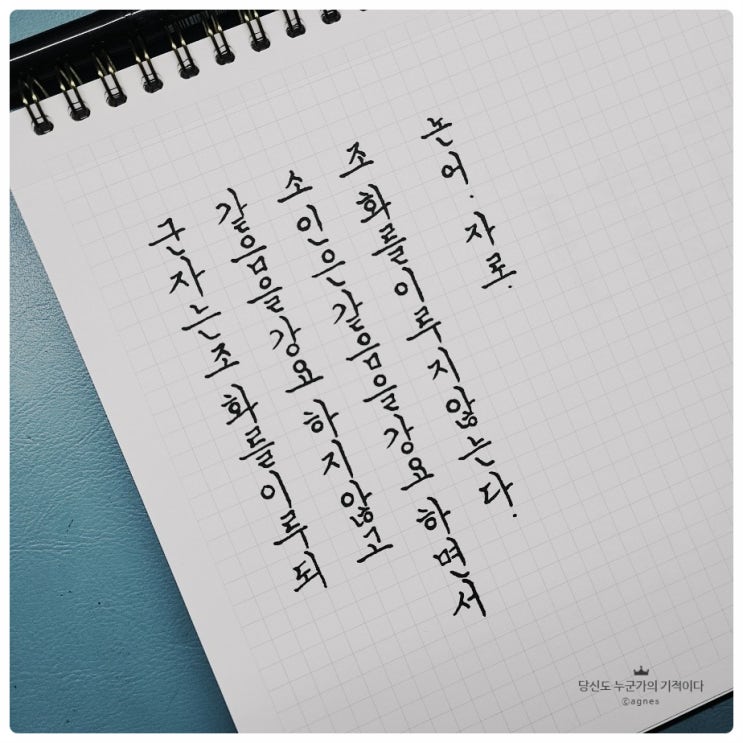 군자는 조화를 이루되
같음을 강요하지 않고
소인은 같음을 강요하면서
조화를 이루지 않는다.
논어. 자로.
당신도 누군가의 기적이다
©agnes